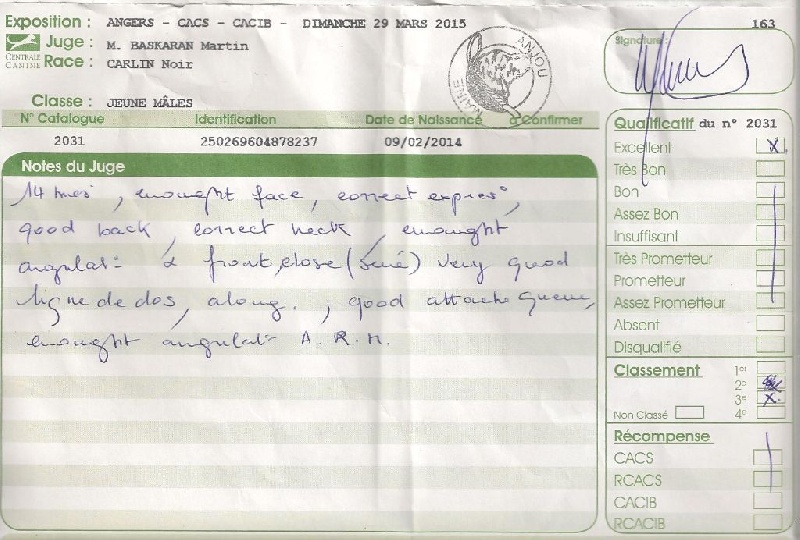 Exposition : ANGERS - CACS - CACIB - DIMANCHE 29 MARS 2015
163
CENTRALE CANINE
Juge : M. BASKARAN Martin
Race : CARLIN Noir
Classe : JEUNE MÂLES
ANJOU
MAINE
Signature :
N° Catalogue Identification Date de Naissance à Confirmer
2031 250269604878237 09/02/2014
Notes du Juge
14 mois, enought face, correct express°,
good back, correct neck, enought
angulat° front, close (serré) very good
ligne de dos, along., good attache queue,
enought angulat° A. R. M.
Qualificatif du n° 2031
Excellent X
Très Bon
Bon
Assez Bon
Insuffisant
Très Prometteur
Prometteur
Assez Prometteur
Absent
Disqualifié
Classement 1e
2e
3e X
Non Classé 4e
Récompense
CACS
RCACS
CACIB
RCACIB